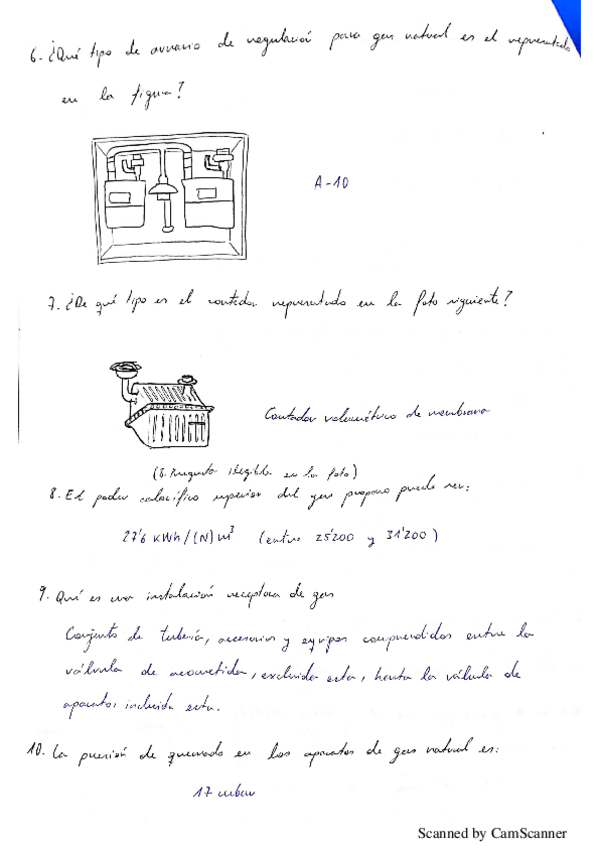 6. ¿Qué tipo de armario de regulación para gas natural es el representado
en la figura?
A-10
7. ¿De qué tipo es el contador representado en la foto siguiente?
Contador volumétrico de membrana
(8. Pregunta ilegible en la foto)
8. El poder calorífico superior del gas propano puede ser:
27'6 KWh/(N)m³ (entre 25'200 y 31'200)
9. Qué es una instalación receptora de gas
Conjunto de tubería, accesorios y equipos comprendidos entre la
válvula de acometida, excluida esta, hasta la válvula de
aparato, incluida esta.
10. La presión de quemado en los aparatos de gas natural es:
17 mbar
Scanned by CamScanner